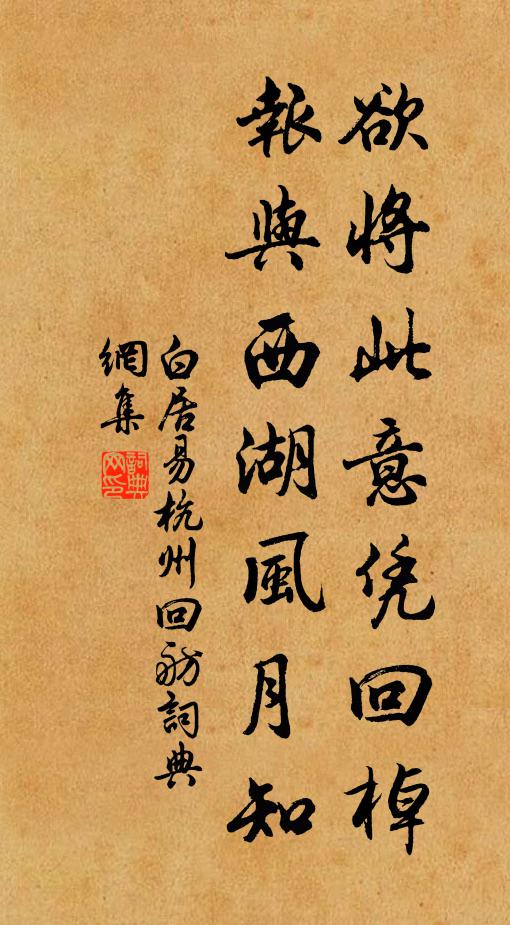 欲將此意凭回棹
報與西湖風月知
白居易杭州回舫詞典
網集
詞典
网印